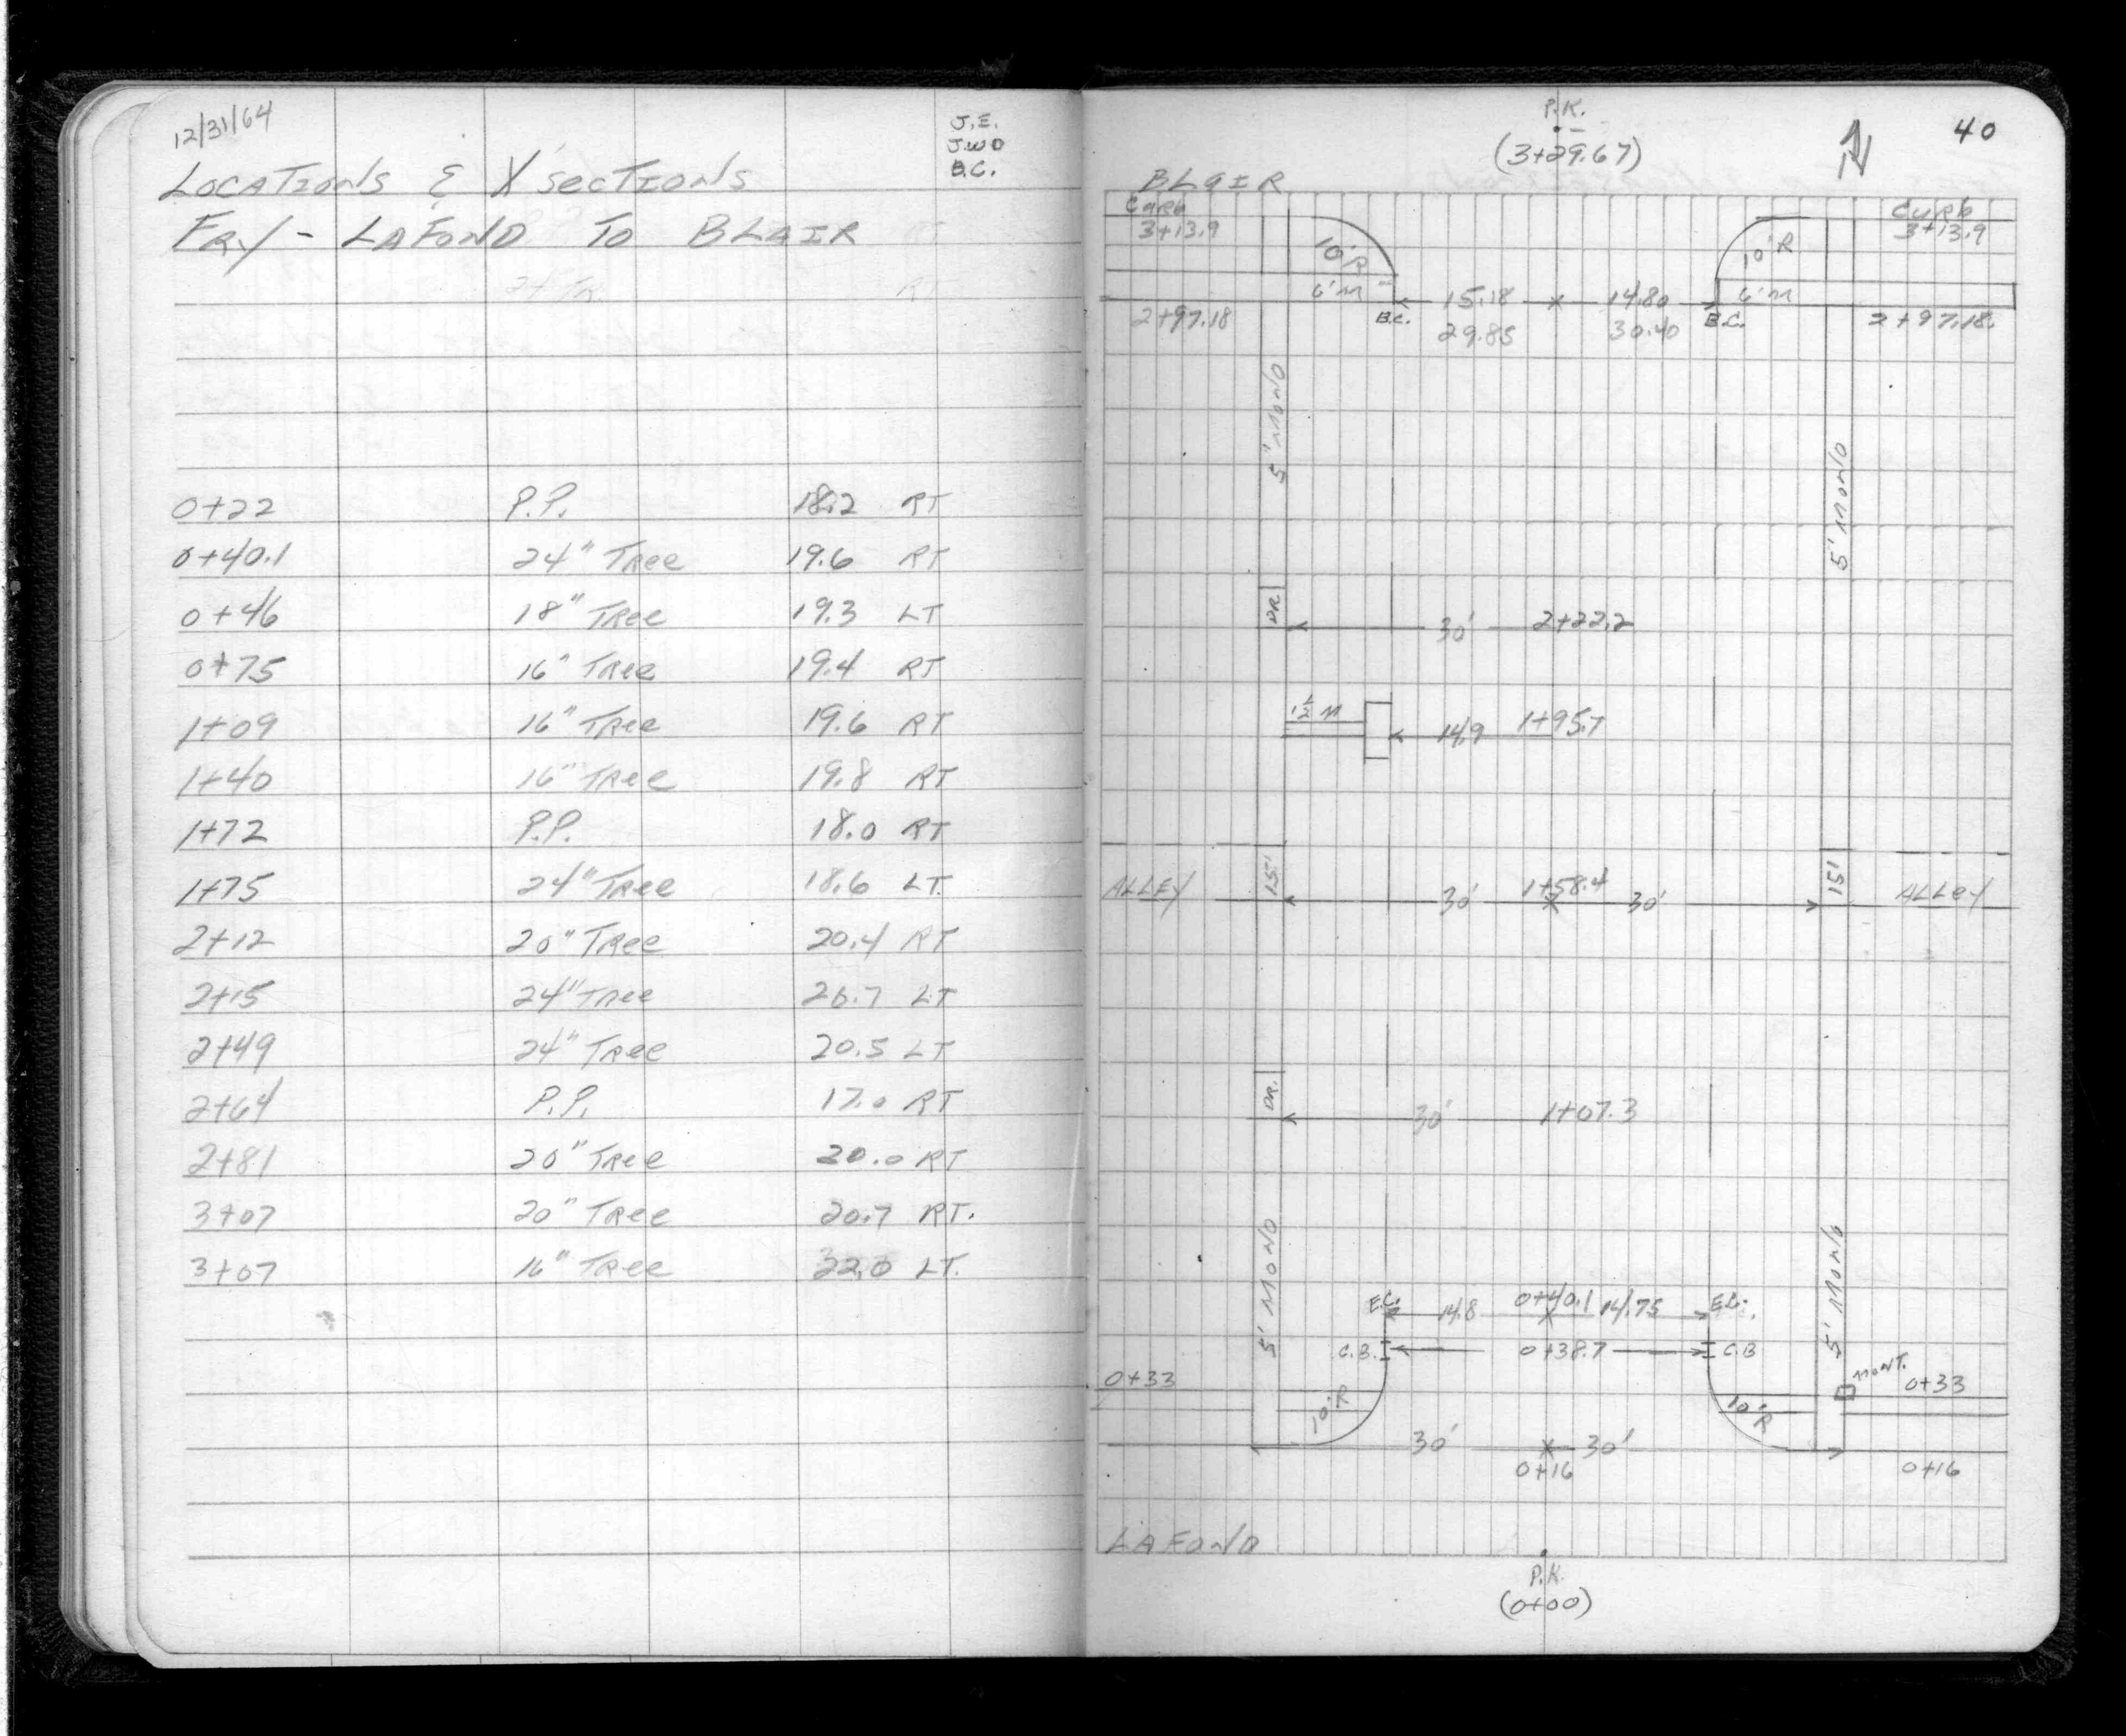 12/31/64
J.E.
J.W.D
B.C.
LOCATIONS & X SECTIONS
FRY - LAFOND TO BLAIR
0+22 P.P. 18.2 RT
0+40.1 24" TRee 19.6 RT
0+46 18" TRee 19.3 LT
0+75 16" TRee 19.4 RT
1+09 16" TRee 19.6 RT
1+40 16" TRee 19.8 RT
1+72 P.P. 18.0 RT
1+75 24" TRee 18.6 LT.
2+12 20" TRee 20.4 RT
2+15 24" TRee 20.7 LT
2+49 24" TRee 20.5 LT
2+64 P.P. 17.0 RT
2+81 20" TRee 20.0 RT
3+07 20" TRee 20.7 RT.
3+07 16" TRee 22.0 LT.
P.K.
(3+29.67)
40
BLAIR
CURB CURB
3+13.9 3+13.9
10'R 10'R
6'M 6'M
15.18 14.80
2+97.18 B.C. B.C. 2+97.18
29.85 30.40
5' MONO 5' MONO
DR 30' 2+22.2
1½ M 14.9 1+95.7
ALLEY 15' 30' 1+58.4 30' 15' ALLEY
DR. 30' 1+07.3
5' MONO 5' MONO
E.C. 14.8 0+40.1 14.75 E.C.
C.B. 0+38.7 C.B
MONT.
0+33 0+33
10'R 10'R
30' 30'
0+16 0+16
LAFOND
P.K.
(0+00)